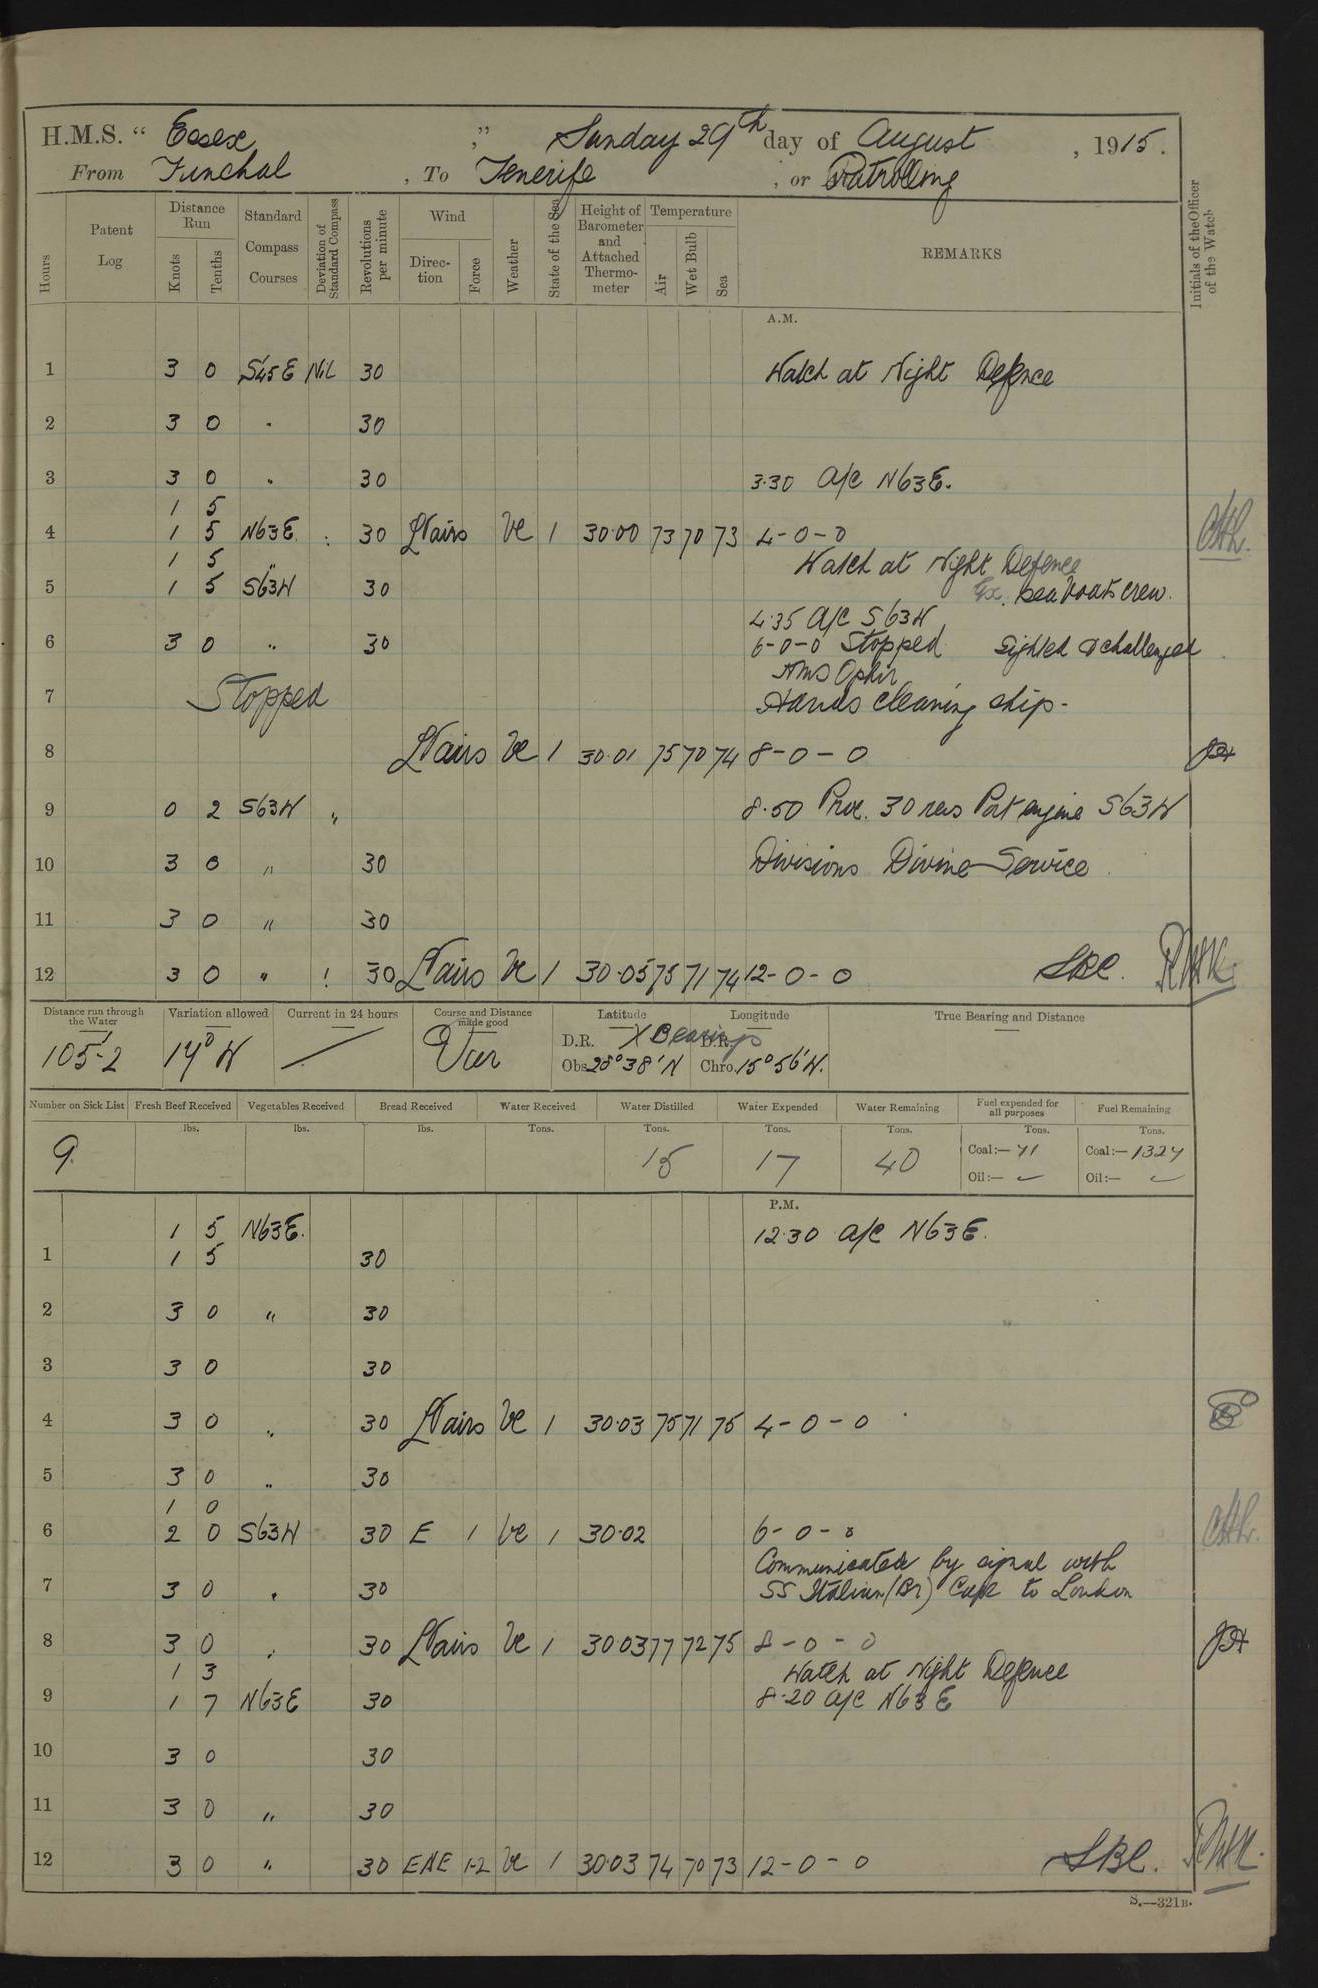 H.M.S. “ Essex ,” Sunday 29th day of August , 1915.
From Funchal , To Tenerife , or Patrolling
Hours
Patent Log
Distance Run
Knots
Tenths
Standard Compass Courses
Deviation of Standard Compass
Revolutions per minute
Wind
Direc-tion
Force
Weather
State of the Sea
Height of Barometer and Attached Thermo-meter
Temperature
Air
Wet Bulb
Sea
REMARKS
Initials of the Officer of the Watch
A.M.
1 3 0 S45E Nil 30 Watch at Night Defence
2 3 0 " 30
3 3 0 " 30 3.30 A/C N63E.
1 5
4 1 5 N63E. : 30 Lt Airs bc 1 30.00 73 70 73 4-0-0
1 5 " Watch at Night Defence
5 1 5 S63W 30 Ex. Sea boats crew.
4.35 A/C S63W
6 3 0 " 30 6-0-0 Stopped Sighted & challenged
HMS Ophir
7 Stopped Hands cleaning ship-
8 Lt Airs bc 1 30.01 75 70 74 8-0-0
9 0 2 S63W " 8.50 Proc. 30 revs Port engine S63W
10 3 0 " 30 Divisions Divine Service
11 3 0 " 30
12 3 0 " ! 30 Lt Airs bc 1 30.05 75 71 74 12-0-0 SBC.
Distance run through the Water
Variation allowed
Current in 24 hours
Course and Distance made good
Latitude
Longitude
True Bearing and Distance
105.2 17° W / Var D.R. X Bearings D.R.
Obs 28°38'N Chro. 15°56'W.
Number on Sick List
Fresh Beef Received
Vegetables Received
Bread Received
Water Received
Water Distilled
Water Expended
Water Remaining
Fuel expended for all purposes
Fuel Remaining
lbs. lbs. lbs. Tons. Tons. Tons. Tons. Tons. Tons.
9. 15 17 40 Coal:— 41 Coal:— 1324
Oil:— ✓ Oil:— ✓
P.M.
1 5 N63E. 12.30 A/C N63E.
1 1 5 30
2 3 0 " 30
3 3 0 30
4 3 0 " 30 Lt Airs bc 1 30.03 75 71 75 4-0-0
5 3 0 " 30
1 0
6 2 0 S63W 30 E 1 bc 1 30.02 6-0-0
Communicated by signal with
7 3 0 " 30 SS Italian (Br) Cape to London
8 3 0 " 30 Lt Airs bc 1 30 03 77 72 75 8-0-0
1 3 Watch at Night Defence
9 1 7 N63E 30 8.20 A/C N63E
10 3 0 30
11 3 0 " 30
12 3 0 " 30 ENE 1-2 bc 1 30.03 74 70 73 12-0-0 SBC.
S.—321B.